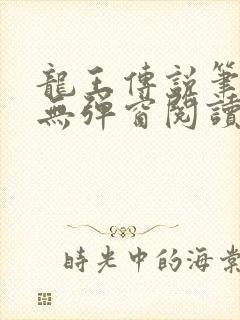 龍王傳說筆
無彈窗閱讀
時光中的海棠